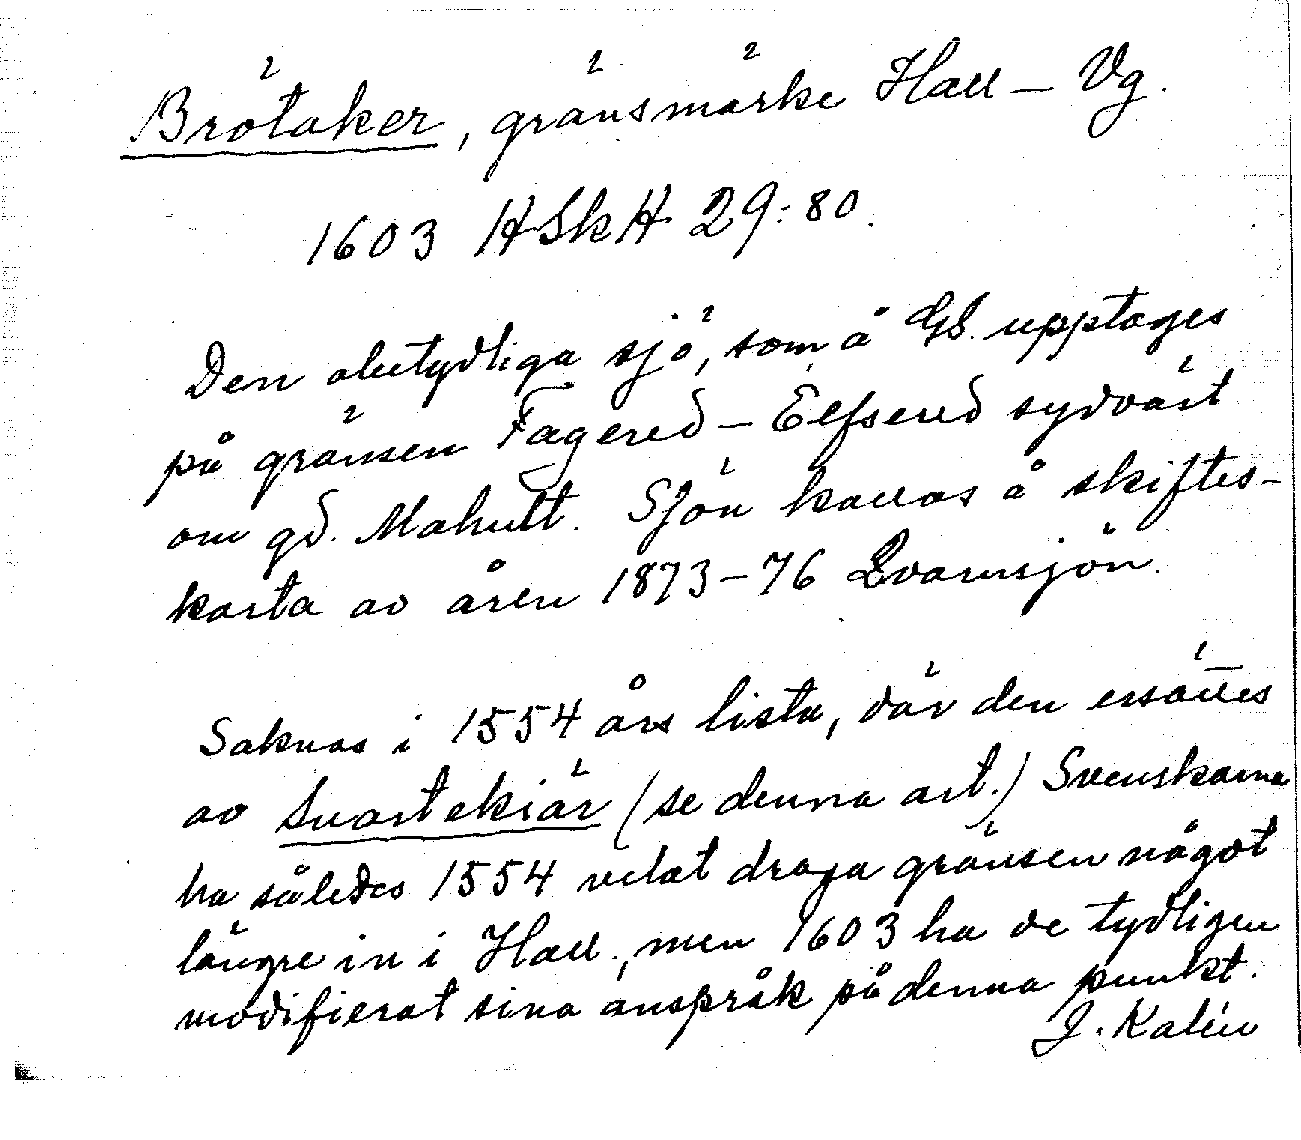 Brötaker, gränsmärke Hall – Vg.
1603 HSkH 29:80.
Den obetydliga sjö, som å GS. upptages
på gränsen Fagered – Elfsered sydväst
om gd. Mahult. Sjön kallas å skiftes-
karta av åren 1873–76 Qvarnsjön.
Saknas i 1554 års lista, där den ersättes
av Suartekiär (se denna art.) Svenskarna
ha således 1554 velat draga gränsen något
längre in i Hall., men 1603 ha de tydligen
modifierat sina anspråk på denna punkt.
J. Kalén